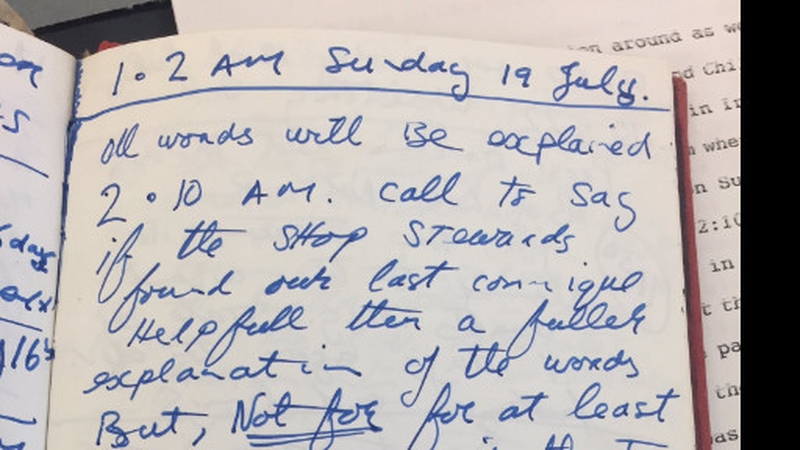 1.2 AM Sunday 19 July.
all words will Be explained
2.10 AM. call to say
if the SHOP STEWARDS
found our last comnique
Helpfull then a fuller
explanation of the words
But, Not for for at least
on around as we
nd Chi
in Ir
whe
n Su
2:10
in
t th
pa
the
as